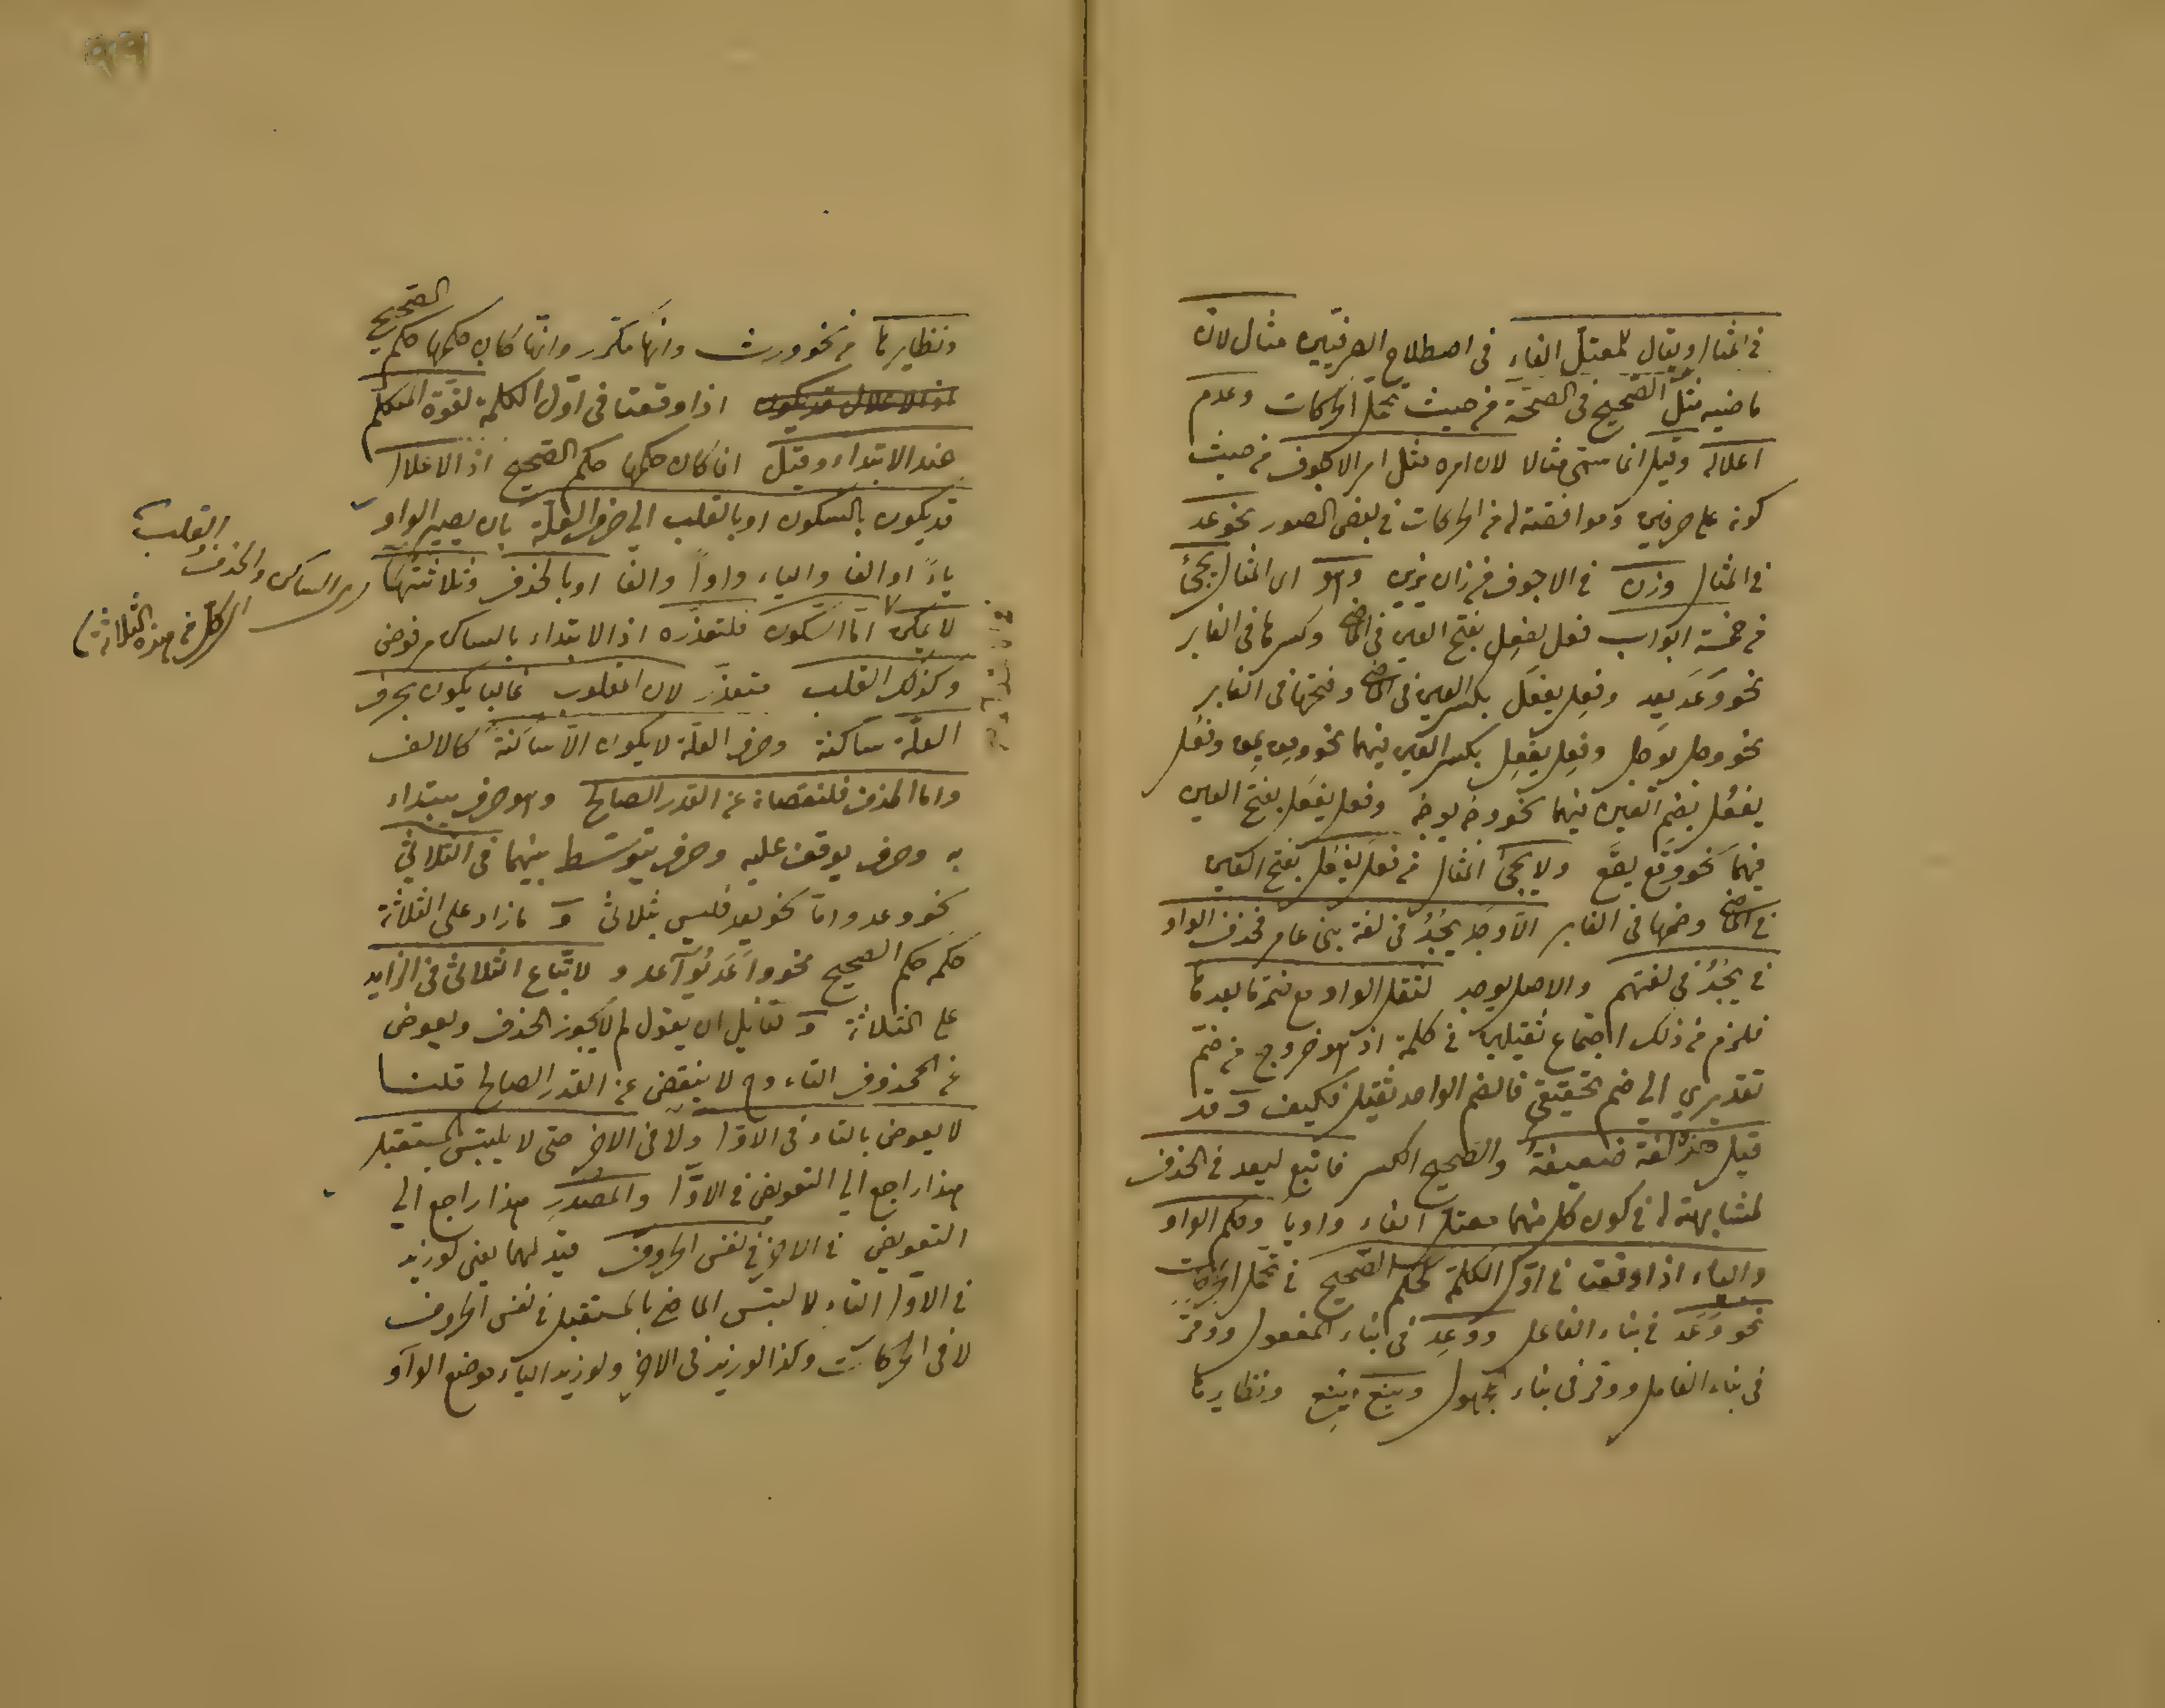 في المثال ويقال للمعتل الفاء في اصطلاح الصرفيين مثال لان
ماضيه مثل الصحيح في الصحة من حيث تحمل الحركات وعدم
اعلاله وقيل انما سمى مثالا لان امره مثل امر الاجوف من حيث
كونه على حرفين وموافقته له في الحركات في بعض الصور نحو عد
في المثال وزن في الاجوف من زان يزين وهو اى المثال يجئ
من خمسة ابواب فعل يفعِل بفتح العين في الماضى وكسرها في الغابر
نحو وَعَدَ يعِد وفعِل يفعَل بكسر العين في الماضى وفتحها في الغابر
نحو وجل يوجل وفعِل يفعِل بكسر العين فيهما نحو ومق يمق وفعُل
يفعُل بضم العين فيهما نحو وجه يوجه وفعل يفعَل بفتح العين
فيهما نحو وقع يقع ولا يجئ المثال من فعل يفعل بفتح العين
في الماضى وضمها في الغابر الا وجد يجُدُ في لغة بنى عامر فحذف الواو
في يجُدُ في لغتهم والاصل يوجد لثقل الواو مع ضمة ما بعدها
فلزم من ذلك اجتماع ثقيلين في كلمة اذ هو خروج من ضم
تقديري الى ضم تحقيقى فالضم الواحد ثقيل فكيف و قد
قيل هذه لغة ضعيفة والصحيح الكسر فاتبع ليعد في الحذف
لمشابهته له في كون كل منهما معتل الفاء واويا وحكم الواو
والياء اذا وقعتا في اول الكلمة كحكم الصحيح في تحمل الحركات
نحو وَعَدَ في بناء الفاعل ووُعِد في بناء المفعول ووقر
في بناء الفاعل ووقر في بناء مجهول وينع اينع ونظايرها
ونظايرها من نحو ورث وانها مكرر وانما كان حكمها حكم الصحيح
اذا وقعتا في اول الكلمة لقوة المتكلم
عند الابتداء وقيل انما كان حكمها حكم الصحيح اذ الاعلال
قد يكون بالسكون او بالقلب الى حرف العلة بان يصير الواو
ياءً او الفا والياء واواً والفا او بالحذف وثلاثتها
لا يمكن اما السكون فلتعذره اذ الابتداء بالساكن مرفوض
وكذلك القلب متعذر لان المقلوب غالبا يكون بحرف
العلّة ساكنة وحرف العلة لا يكون الا ساكنة كالالف
واما الحذف فلنقصانه عن القدر الصالح وهو حرف يبتداء
به وحرف يوقف عليه وحرف يتوسّط بينهما في الثلاثي
نحو وعد واما نحو يعد فليس بثلاثى و ما زاد على الثلاثة
حكمه حكم الصحيح نحو واعد يُواعد و لاتّباع الثلاثى في الزايد
على الثلاثة و لقايل ان يقول لم لا يجوز الحذف ويعوض
عن المحذوف التاء وح لا ينقص عن القدر الصالح قلنا
لا يعوض بالتاء في الاول ولا في الاخر حتى لا يلتبس المستقبل
هذا راجع الى التعويض في الاول والمصدر هذا راجع الى
التعويض في الاخر في نفس الحروف قيد لهما يعنى لو زيد
في الاول التاء لا لتبس الماضى بالمستقبل في نفس الحروف
لا في الحركات وكذا لو زيد في الاخر ولو زيد الياء موضع الواو
القلب
والحذف
الكل في هذه الثلاثة